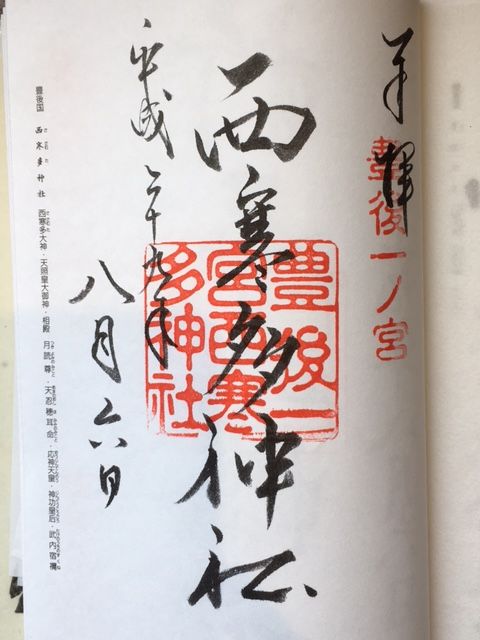 奉拝
豊後一ノ宮
西寒多神社
豊後一宮西寒多神社
平成二十九年
八月六日
豊後国 西寒多神社 西寒多大神・天照皇大御神・相殿 月読尊・天忍穂耳命・応神天皇・神功皇后・武内宿禰